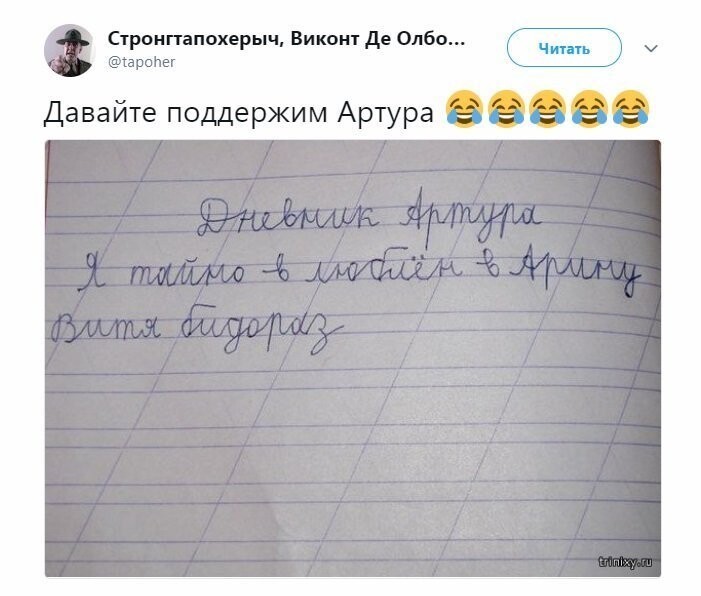 Стронгтапохерыч, Виконт Де Олбо...
@tapoher
Читать
Давайте поддержим Артура 😂😂😂😂😂
Дневник Артура
Я тайно в люблён в Арину
Витя бидораз
trinixy.ru